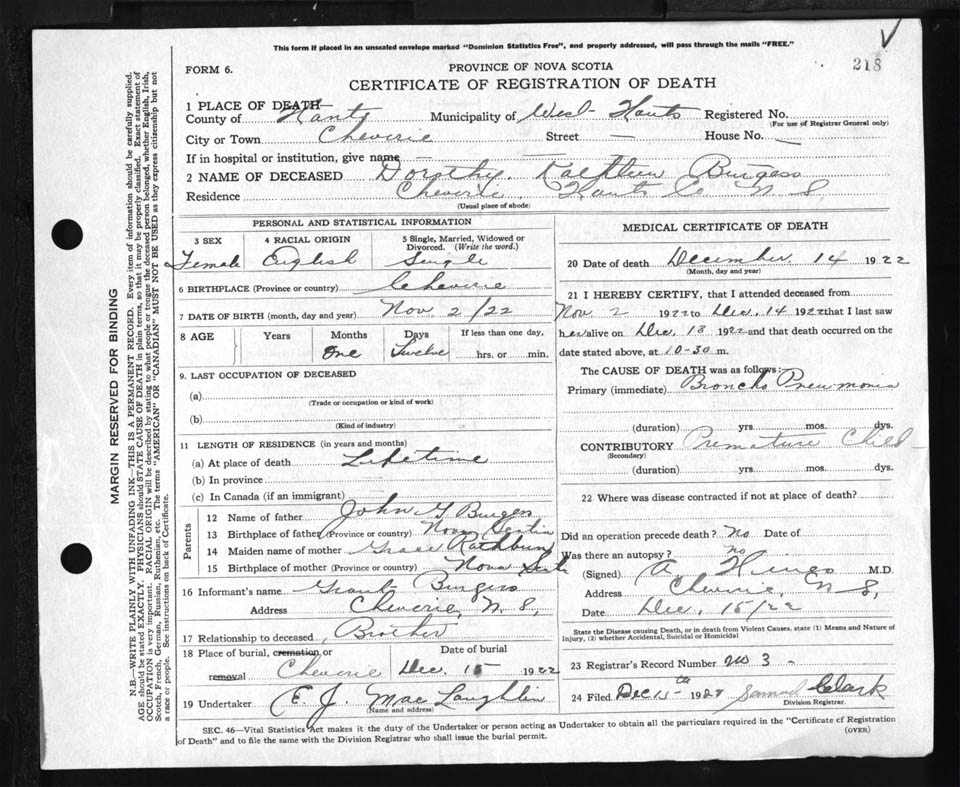 This form if placed in an unsealed envelope marked "Dominion Statistics Free", and properly addressed, will pass through the mails "FREE."
218
FORM 6.
PROVINCE OF NOVA SCOTIA
CERTIFICATE OF REGISTRATION OF DEATH
1 PLACE OF DEATH
County of Hants Municipality of West Hants Registered No.
(For use of Registrar General only)
City or Town Cheverie Street — House No. —
If in hospital or institution, give name — —
2 NAME OF DECEASED Dorothy Kathleen Burgess
Residence Cheverie, Hants Co. N.S.
(Usual place of abode)
PERSONAL AND STATISTICAL INFORMATION
3 SEX 4 RACIAL ORIGIN 5 Single, Married, Widowed or Divorced. (Write the word.)
Female English Single
6 BIRTHPLACE (Province or country) Cheverie
7 DATE OF BIRTH (month, day and year) Nov 2/22
8 AGE Years Months Days If less than one day,
One Twelve hrs. or min.
9. LAST OCCUPATION OF DECEASED
(a)
(Trade or occupation or kind of work)
(b)
(Kind of industry)
11 LENGTH OF RESIDENCE (in years and months)
(a) At place of death Lifetime
(b) In province
(c) In Canada (if an immigrant)
Parents
12 Name of father John G Burgess
13 Birthplace of father (Province or country) Nova Scotia
14 Maiden name of mother Grace Rathburn
15 Birthplace of mother (Province or country) Nova Scotia
16 Informant's name Grant Burgess
Address Cheverie, N.S.
17 Relationship to deceased, Brother
18 Place of burial, cremation, or removal Cheverie
Date of burial Dec. 15 1922
19 Undertaker E. J. MacLaughlin
(Name and address)
MEDICAL CERTIFICATE OF DEATH
20 Date of death December 14 1922
(Month, day and year)
21 I HEREBY CERTIFY, that I attended deceased from
Nov 2 1922 to Dec. 14 1922 that I last saw
her alive on Dec 13 1922 and that death occurred on the
date stated above, at 10-30 m.
The CAUSE OF DEATH was as follows:
Primary (immediate) Broncho Pneumonia
(duration) yrs. mos. dys.
CONTRIBUTORY Premature Child
(Secondary)
(duration) yrs. mos. dys.
22 Where was disease contracted if not at place of death?
Did an operation precede death? No Date of
Was there an autopsy? no
(Signed) A Hines M.D.
Address Cheverie, N S,
Date Dec, 15/22
State the Disease causing Death, or in death from Violent Causes, state (1) Means and Nature of
Injury, (2) whether Accidental, Suicidal or Homicidal
23 Registrar's Record Number no 3
24 Filed Dec 15th 1922 Samuel Clark
Division Registrar.
SEC. 46—Vital Statistics Act makes it the duty of the Undertaker or person acting as Undertaker to obtain all the particulars required in the "Certificate of Registration
of Death" and to file the same with the Division Registrar who shall issue the burial permit.
(OVER)
MARGIN RESERVED FOR BINDING
N.B.—WRITE PLAINLY WITH UNFADING INK—THIS IS A PERMANENT RECORD. Every item of information should be carefully supplied.
AGE should be stated EXACTLY. PHYSICIANS should STATE CAUSE OF DEATH in plain terms, so that it may be properly classified. Exact statement of
OCCUPATION is very important. RACIAL ORIGIN will be described by stating to what people or tongue the deceased person belonged, whether English, Irish,
Scotch, French, German, Russian, Ruthenian, etc. The terms "AMERICAN" OR "CANADIAN" MUST NOT BE USED as they express citizenship but not
a race or people. See instructions on back of Certificate.